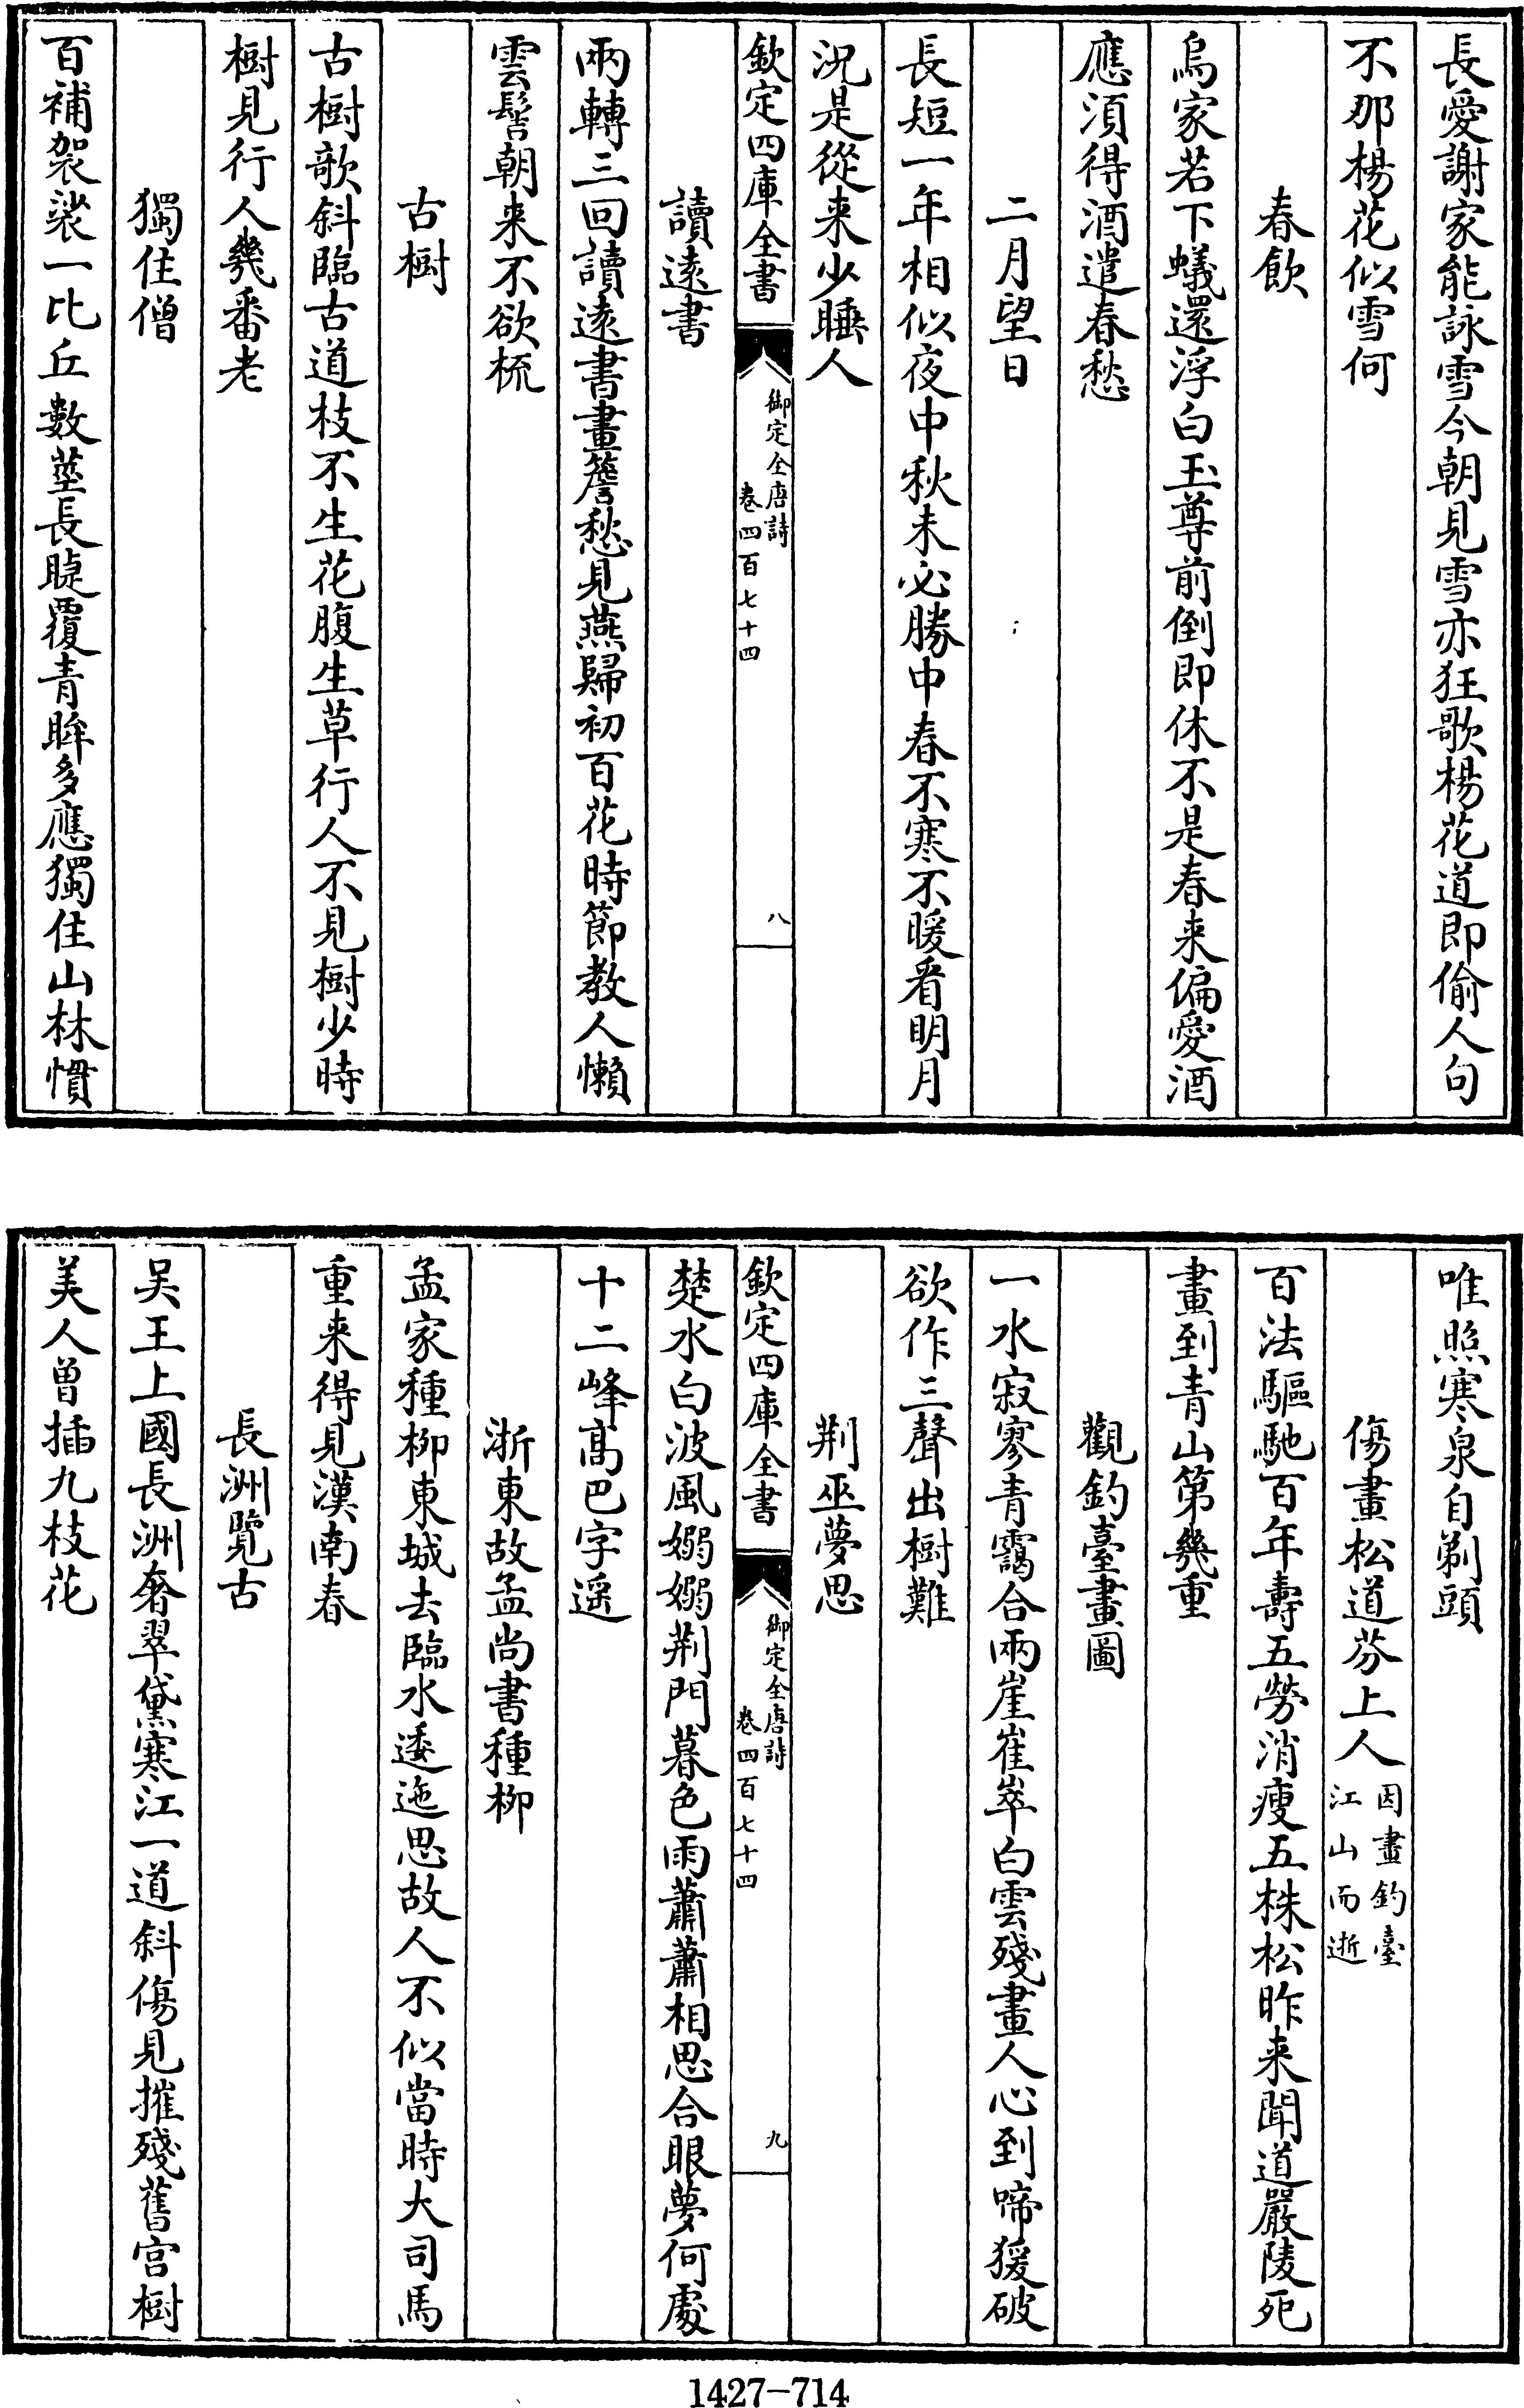 長愛謝家能詠雪今朝見雪亦狂歌楊花道即偷人句
不那楊花似雪何
春飲
烏家若下蟻還浮白玉尊前倒即休不是春来偏愛酒
應須得酒遣春愁
二月望日
長短一年相似夜中秋未必勝中春不寒不暖看明月
況是從来少睡人
欽定四庫全書
御定全唐詩
卷四百七十四
八
讀遠書
兩轉三回讀遠書畫簷愁見燕歸初百花時節教人懶
雲髻朝来不欲梳
古樹
古樹欹斜臨古道枝不生花腹生草行人不見樹少時
樹見行人幾番老
獨住僧
百補袈裟一比丘數莖長睫覆青眸多應獨住山林慣
唯照寒泉自剃頭
傷畫松道芬上人因畫釣臺江山而逝
百法驅馳百年壽五勞消瘦五株松昨来聞道嚴陵死
畫到青山第幾重
觀釣臺畫圖
一水寂寥青靄合兩崖崔崒白雲殘畫人心到啼猨破
欲作三聲出樹難
荆巫夢思
欽定四庫全書
御定全唐詩
卷四百七十四
九
楚水白波風嫋嫋荆門暮色雨蕭蕭相思合眼夢何處
十二峰髙巴字遥
浙東故孟尚書種柳
孟家種柳東城去臨水逶迤思故人不似當時大司馬
重来得見漢南春
長洲覽古
吴王上國長洲奢翠黛寒江一道斜傷見摧殘舊宫樹
美人曾插九枝花
1427-714